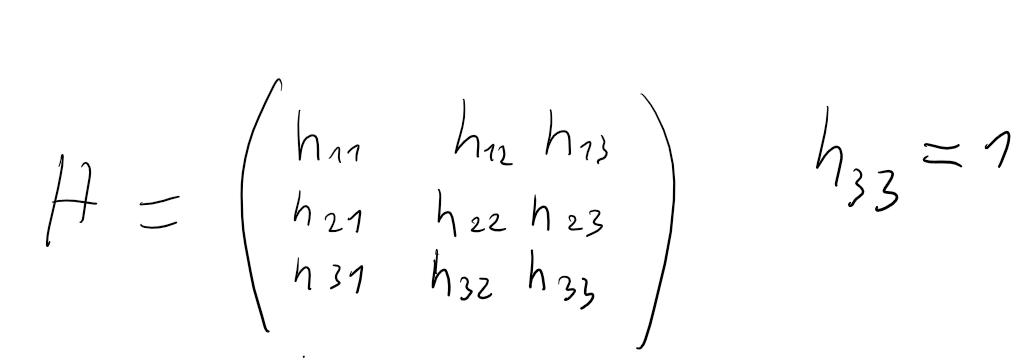 h11 h12 h13
H = h21 h22 h23 h33 = 1
h31 h32 h33